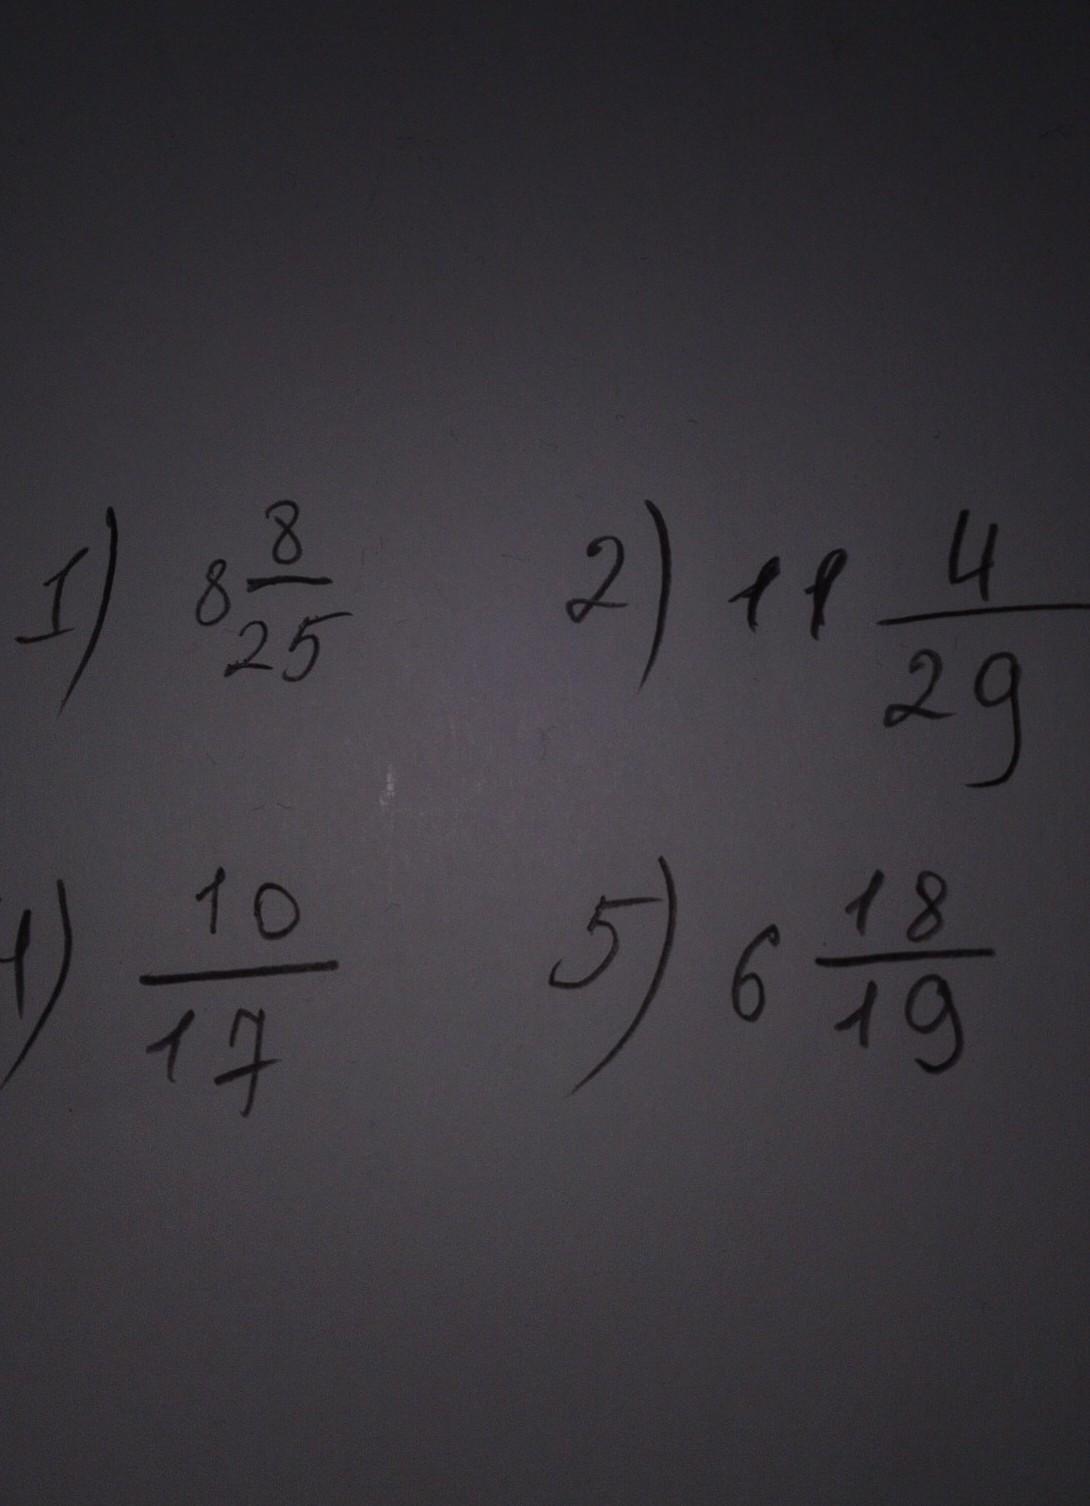 1) 8 8/25 2) 11 4/29
4) 10/17 5) 6 18/19